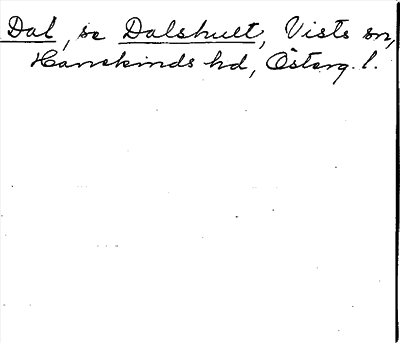 Dal, se Dalshult, Vists sn,
Hanekinds hd, Österg. l.